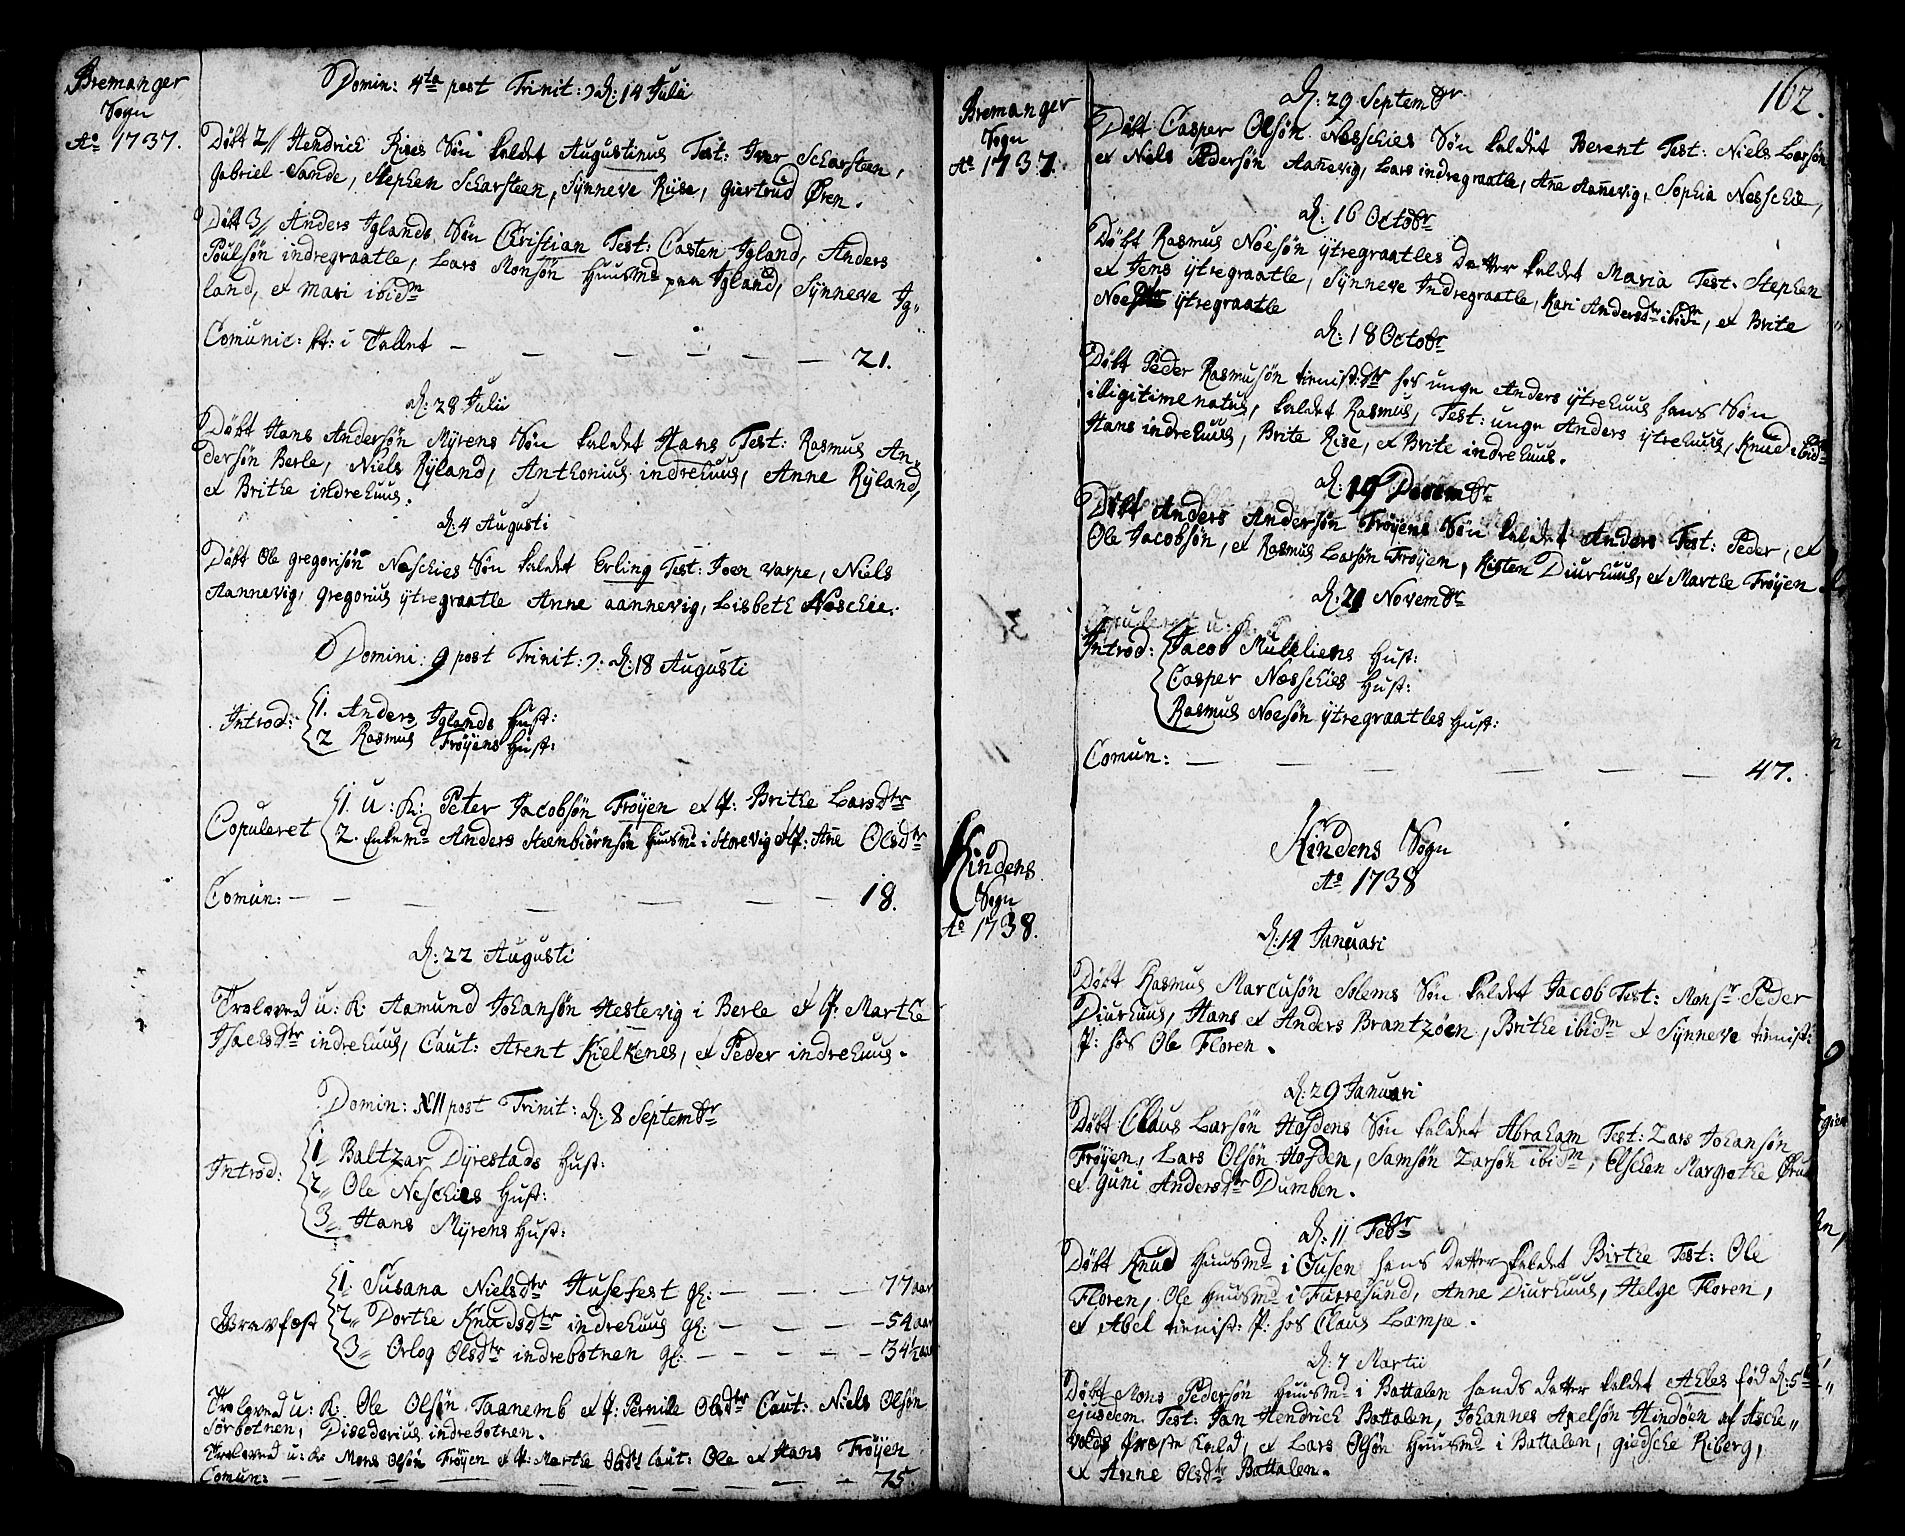 Bremanger
Sogn
Ao 1737.
Domin: 4ta post Trinit: d: 14 Julii
Døbt 2// Hendrich Rises Søn kaldet Augustinus Test: Iver Scharsteen,
Gabriel Sande, Stephen Scharsteen, Synneve Riise, Giertrud Øren.
Døbt 3// Anders Iglands Søn Christian Test: Casten Igland, Anders
Poulsøn indregraatle, Lars Monsøn Huusmd paa Igland, Synneve Ig-
land, et Mari ibidm
Comunic: st: i Tallet — — — — — — 21.
d: 28 Julii
Døbt Hans Andersøn Myrens Søn kaldet Hans Test: Rasmus An-
dersøn Berle, Niels Ryland, Anthonius indrehuus, Anne Ryland,
et Brithe indrehuus.
d: 4 Augusti
Døbt Ole Gregorisøn Neschies Søn kaldet Erling Test: Joen Varpe, Niels
Aannevig, Gregorius ytregraatle Anne aannevig, Lisbeth Neschie.
Domini: 9 post Trinit: d: 18 Augusti
Introd: 1. Anders Iglands Hust:
2 Rasmus Frøyens Hust:
Copuleret 1. U: K: Peter Jacobsøn Frøyen et P: Brithe Larsdtr
2. Enkemd Anders Steenbiørnsøn Huusmd i Storevig et P: Ane Olsdtr
Comun: — — — — — — — 18.
d: 22 Augusti
Troloved u: K: Aamund Johansøn Hestevig i Berle et P: Marthe
Isachsdtr indrehuus, Caut: Arent Kielkenes, et Peder indrehuus.
Domin: 11 post Trinit: d: 8 Septembr
Introd: 1 Baltzar Dyrestads Hust:
2, Ole Neschies Hust:
3, Hans Myrens Hust:
Gravfæst 1. Susana Nielsdtr Husefest gl: — — — 77 aar
2, Dorthe Knudsdtr indrehuus gl: — — — 54 aar
3, Orlog Olsdtr indrebotnen gl: — — — — 34½ aar
Troloved u: K: Ole Olsøn Taanemb et P: Pernille Olsdtr Caut: Niels Olsøn
Sørbotnen, Disederius indrebotnen.
Troloved u: K: Mons Olsøn Frøyen et P: Marthe Olsdtr Caut: Ole et Hans Frøyen
Comun: — — — — — — — 75.
Bremanger
Sogn
Ao 1737.
162.
d: 29 Septembr
Døbt Casper Olsøn Nesschies Søn kaldet Berent Test: Niels Larsøn
et Niels Pedersøn Aanevig, Lars indregraatle, Ane Aanevig, Sophia Nesschie,
d: 16 Octobr
Døbt Rasmus Noesøn ytregraatles Datter kaldet Maria Test: Stephen
et Jens ytregraatle, Synneve Indregraatle, Kari Andersdtr ibidm, et Brite
ytregraatle
d: 18 Octobr
Døbt Peder Rasmusøn tienist: hos unge Anders ytrehuus hans Søn
illigitime natus, kaldet Rasmus, Test: unge Anders ytrehuus, Knud ibidm
Hans indrehuus, Brite Rise, et Brite indrehuus.
d: 19 Decembr
Døbt Anders Andersøn Frøyens Søn kaldet Anders Test: Peder, et
Ole Jacobsøn, et Rasmus Larsøn Frøyen, Kisten Diurhuus, et Marthe Frøyen
d: 21 Novembr
Introd: Jacob Muleliens Hust:
Casper Nesschies Hust:
Rasmus Noesøn ytregraatles Hust:
Comun: — — — — — — 47.
Kindens Sogn
Ao 1738
Kindens
Sogn
Ao 1738.
d: 14 Januari
Døbt Rasmus Marcusøn Solems Søn kaldet Jacob Test: Monsr Peder
Diurhuus, Hans et Anders Brantzøen, Brithe ibidm et Synneve tienist:
P: hos Ole Floren.
d: 29 Januari
Døbt Claus Larsøn Hofdens Søn kaldet Abraham Test: Lars Johansøn
Frøyen, Lars Olsøn Hofden, Samsøn Larsøn ibidm, Elschen Margrethe
et Guni Andersdtr Dumben.
d: 11 Febr
Døbt Knud Huusmd i Ousen hans Datter kaldet Birthe Test: Ole
Floren, Ole Huusmd i Furresund, Anne Diurhuus, Helge Floren,
et Abel tienist: P: hos Claus Lampe.
d: 7 Martii
Døbt Mons Pedersøn Huusmd i Battalen hands datter kaldet Ahles fød d: 5te
ejusdem Test: Jan Hendrich Battalen, Johannes Axelsøn Hindøen af Asche-
volds Præste Kald, et Lars Olsøn Huusmd i Battalen, Giedsche Riberg,
et Anne Olsdtr Battalen.